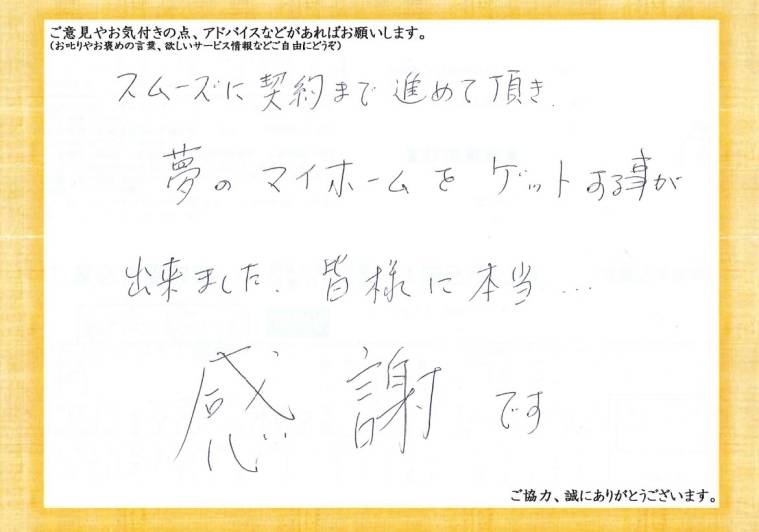 ご意見やお気付きの点、アドバイスなどがあればお願いします。
(お叱りやお褒めの言葉、欲しいサービス情報などご自由にどうぞ)
スムーズに契約まで進めて頂き、
夢のマイホームをゲットする事が
出来ました。皆様に本当…
感謝です
ご協力、誠にありがとうございます。